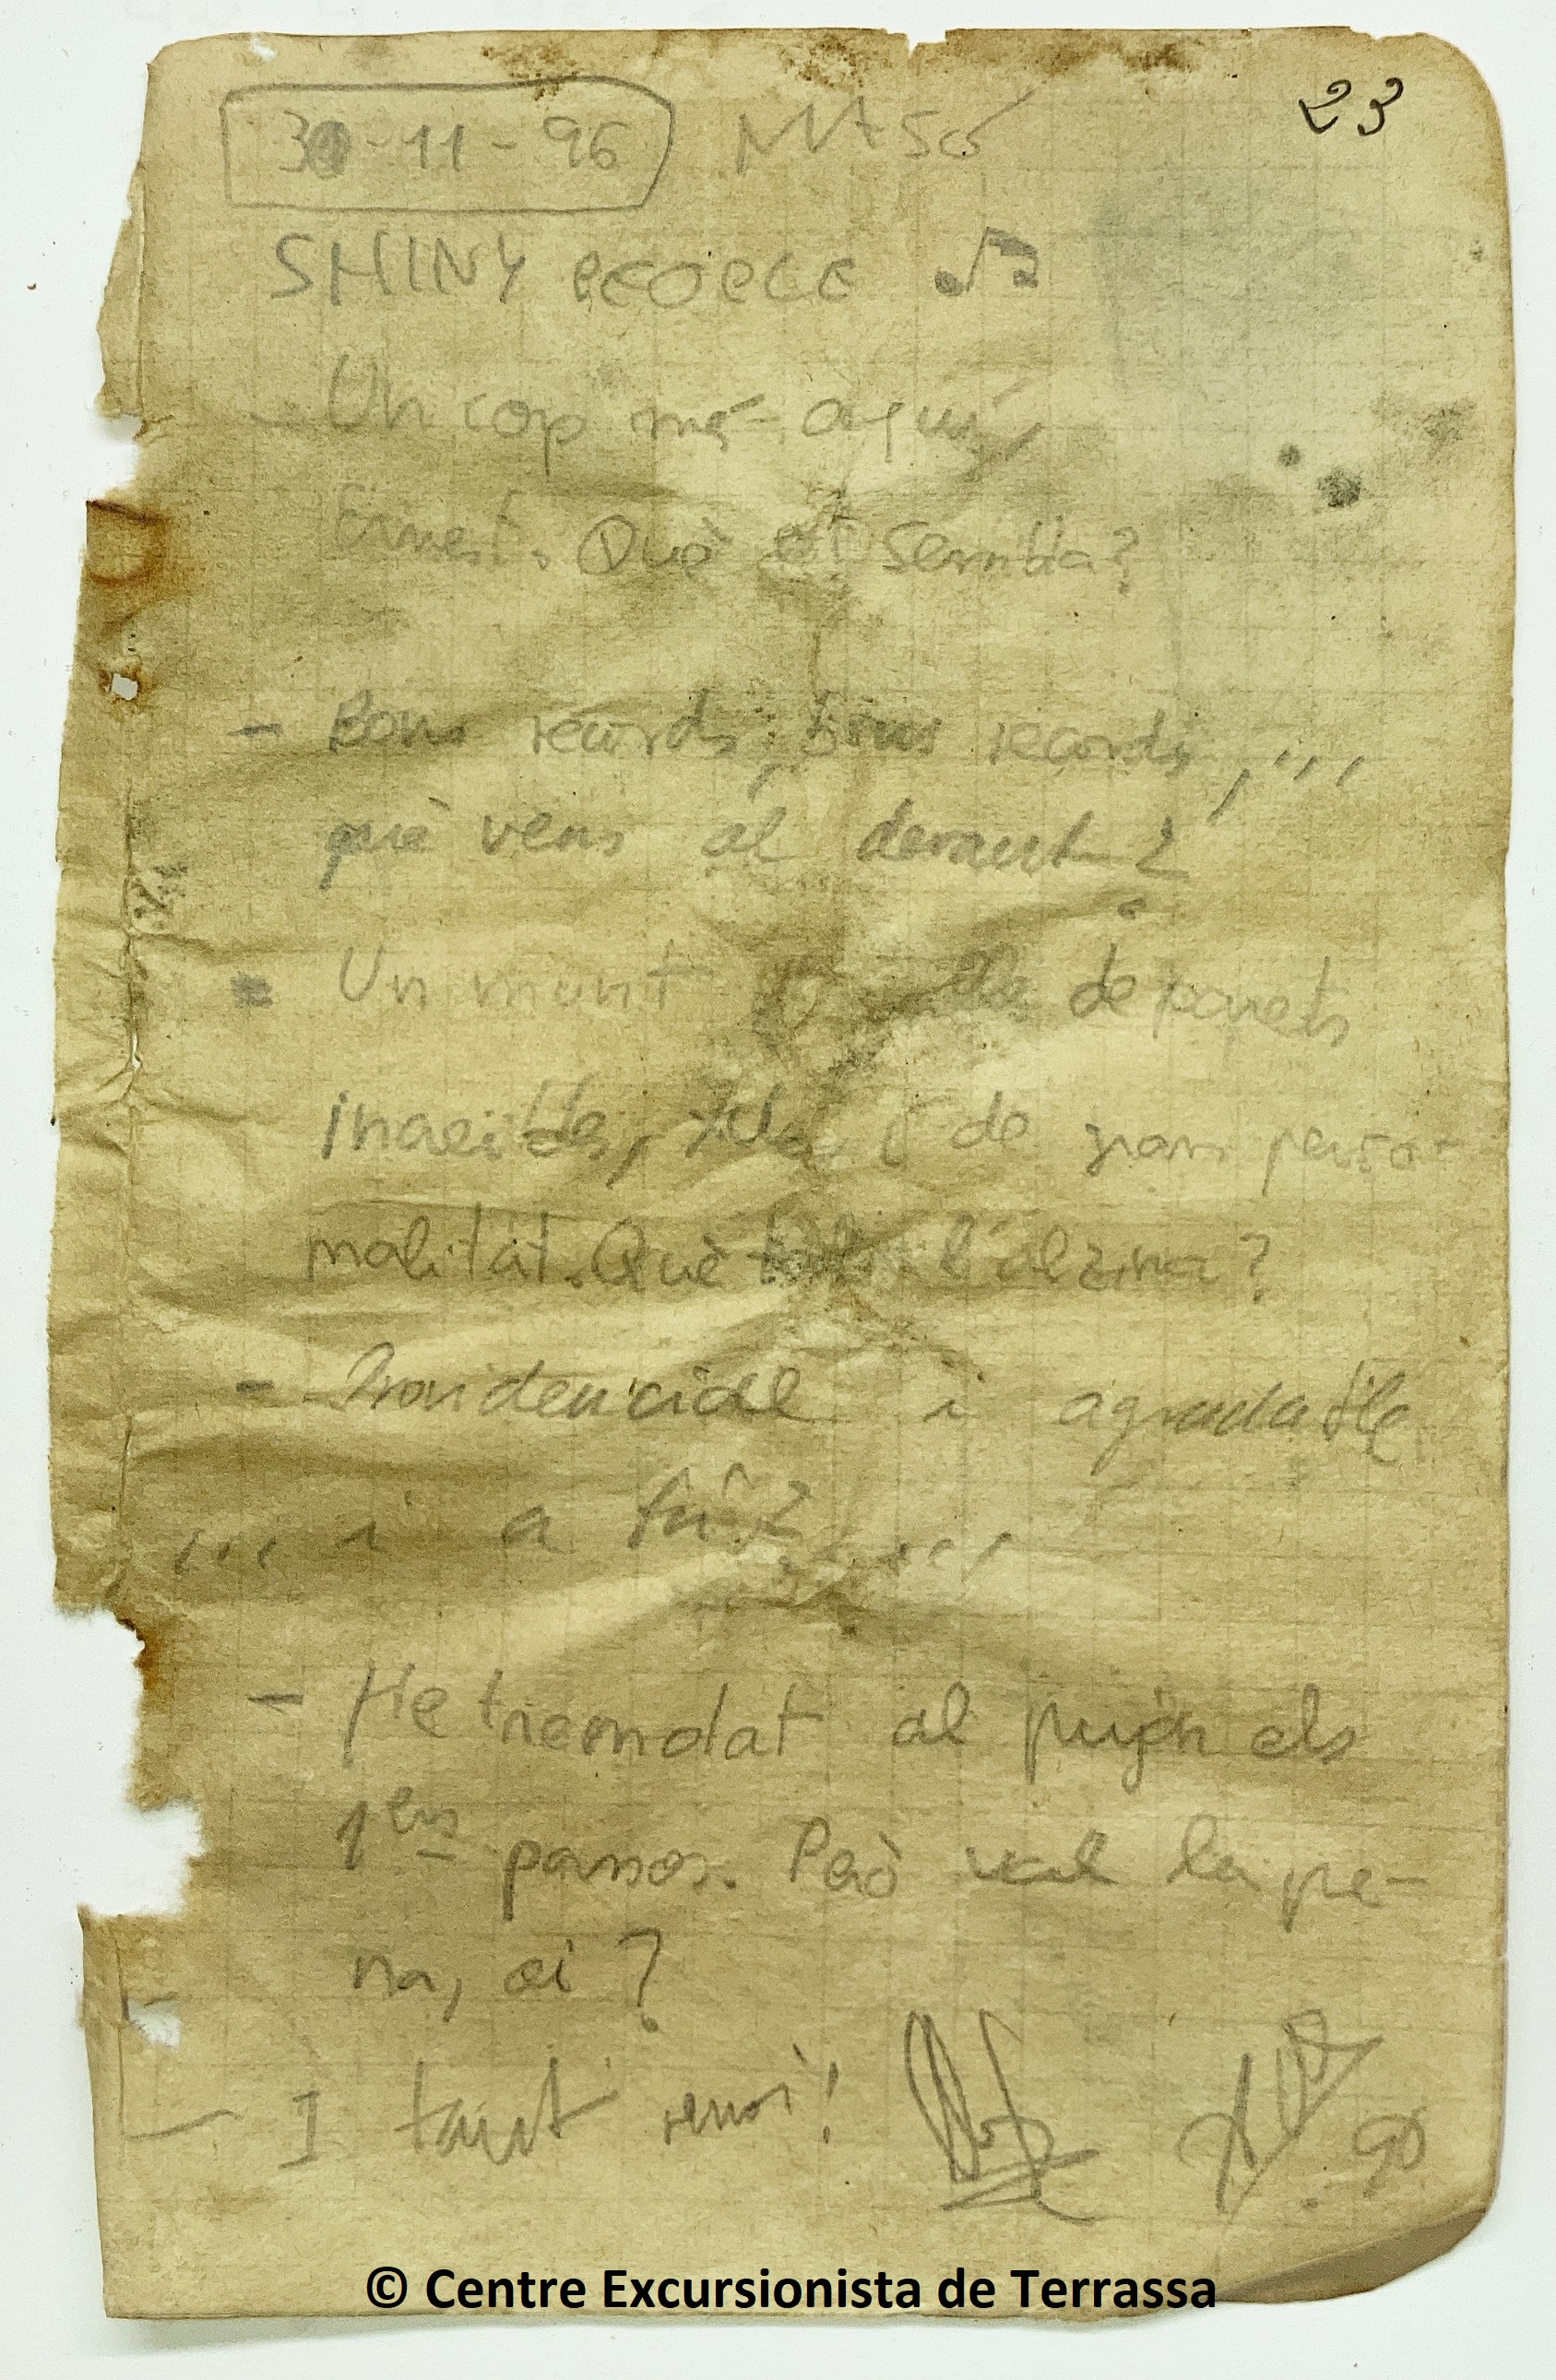 23
30-11-96
SHINY PEOPLE
- Un cop més aquí,
Ernest. Què et sembla?
- Bons records, bons records, ...
què vens al devant?
- Un munt de parets
inaccibles, i de gran perso-
nalitat. Què tal l'alzina?
- Providencial i agradable,
... i a tu? ...
- He tremolat al pujar els
1ers passos. Però val la pe-
na, oi?
- I tant remoi!
© Centre Excursionista de Terrassa